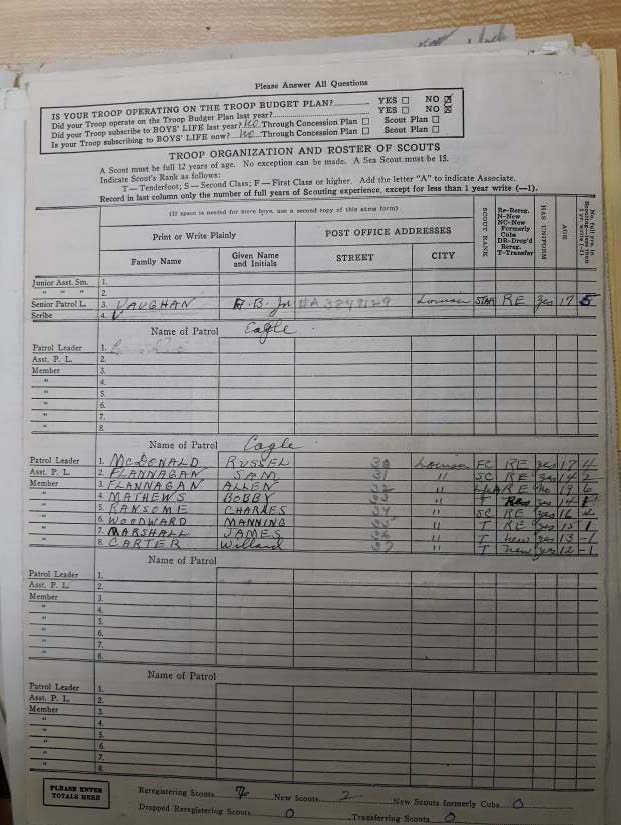 Please Answer All Questions
IS YOUR TROOP OPERATING ON THE TROOP BUDGET PLAN? YES ☐ NO ☒
Did your Troop operate on the Troop Budget Plan last year? YES ☐ NO ☒
Did your Troop subscribe to BOYS' LIFE last year? No Through Concession Plan ☐ Scout Plan ☐
Is your Troop subscribing to BOYS' LIFE now? No Through Concession Plan ☐ Scout Plan ☐
TROOP ORGANIZATION AND ROSTER OF SCOUTS
A Scout must be full 12 years of age. No exception can be made. A Sea Scout must be 15.
Indicate Scout's Rank as follows:
T—Tenderfoot; S—Second Class; F—First Class or higher. Add the letter "A" to indicate Associate.
Record in last column only the number of full years of Scouting experience, except for less than 1 year write (—1).
(If space is needed for more boys, use a second copy of this same form)
Print or Write Plainly POST OFFICE ADDRESSES
Family Name Given Name and Initials STREET CITY SCOUT RANK Re-Rereg. N-New NC-New Formerly Cubs DR-Drop'd Rereg. T-Transfer HAS UNIFORM AGE
Junior Asst. Sm. 1.
" " " 2.
Senior Patrol L. 3. VAUGHAN A. B. Jr 3849129 Louisa STAR RE yes 17 5
Scribe 4.
Name of Patrol Eagle
Patrol Leader 1.
Asst. P. L. 2.
Member 3.
" 4.
" 5.
" 6.
" 7.
" 8.
Name of Patrol Eagle
Patrol Leader 1. McDONALD RUSSEL 30 Louisa FC RE yes 17 4
Asst. P. L. 2. FLANNAGAN SAM 31 " SC RE yes 14 2
Member 3. FLANNAGAN ALLEN 32 " RE no 19 6
" 4. MATHEWS BOBBY 33 " T yes 14 1
" 5. RANSOME CHARLES 34 " SC RE yes 16
" 6. WOODWARD MANNING 35 " T RE yes 15 1
" 7. MARSHALL JAMES 36 " T New yes 13 -1
" 8. CARTER Willard 37 " T new yes 12 -1
Name of Patrol
Patrol Leader 1.
Asst. P. L. 2.
Member 3.
" 4.
" 5.
" 6.
" 7.
" 8.
Name of Patrol
Patrol Leader 1.
Asst. P. L. 2.
Member 3.
" 4.
" 5.
" 6.
" 7.
" 8.
PLEASE ENTER TOTALS HERE
Reregistering Scouts 7 New Scouts 2 New Scouts formerly Cubs 0
Dropped Reregistering Scouts 0 Transferring Scouts 0